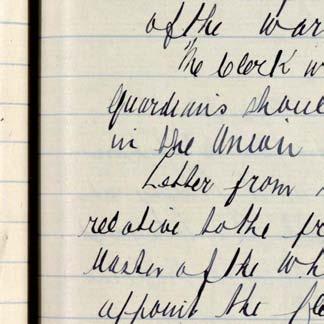 of the war
The Clerk w
Guardians shoul
in the Union
Letter from
relative to the fr
Master of the Wh
appoint the fle